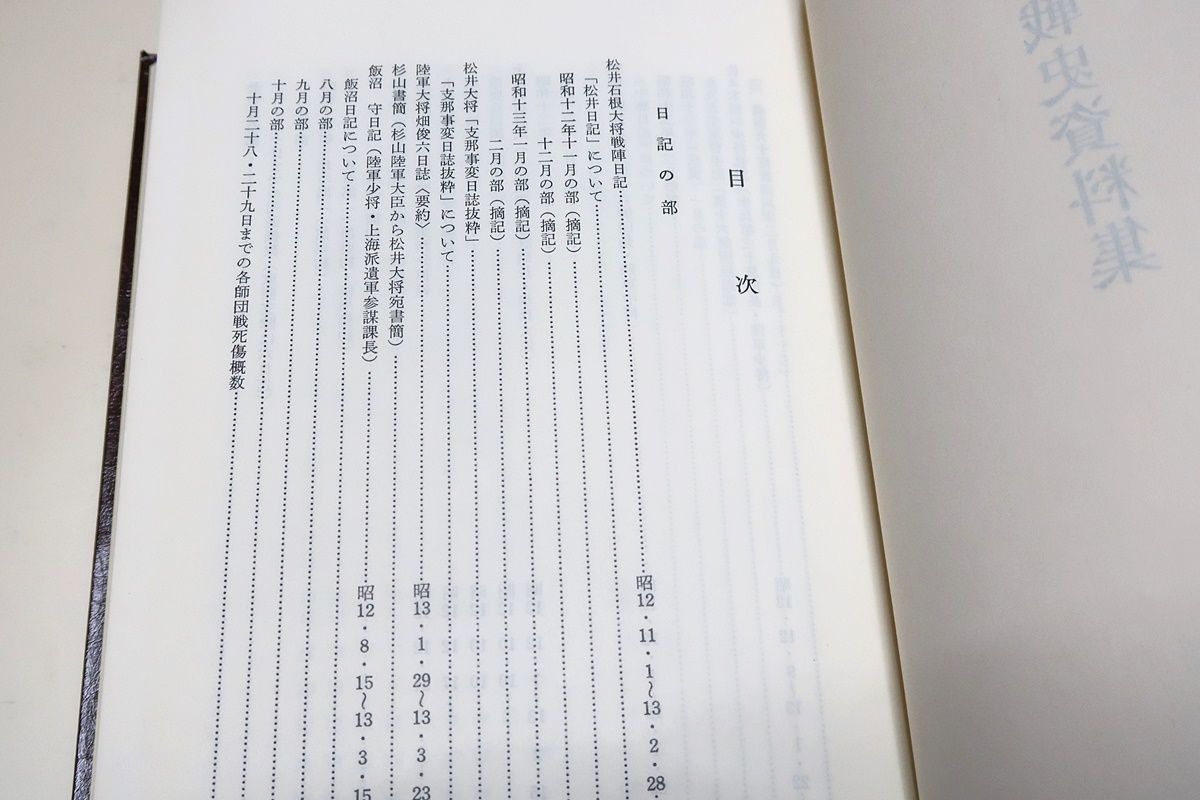 戦史資料集
目次
日記の部
松井石根大将戦陣日記……昭12・11・1〜13・2・28
「松井日記」について……
昭和十二年十一月の部（摘記）……
十二月の部（摘記）……
昭和十三年一月の部（摘記）……
二月の部（摘記）……
松井大将「支那事変日誌抜粋」……
「支那事変日誌抜粋」について……
陸軍大将畑俊六日誌〈要約〉……昭13・1・29〜13・3・23
杉山書簡（杉山陸軍大臣から松井大将宛書簡）……
飯沼 守日記（陸軍少将・上海派遣軍参謀課長）……昭12・8・15〜13・3・15
飯沼日記について……
八月の部……
九月の部……
十月の部……
十月二十八・二十九日までの各師団戦死傷概数……